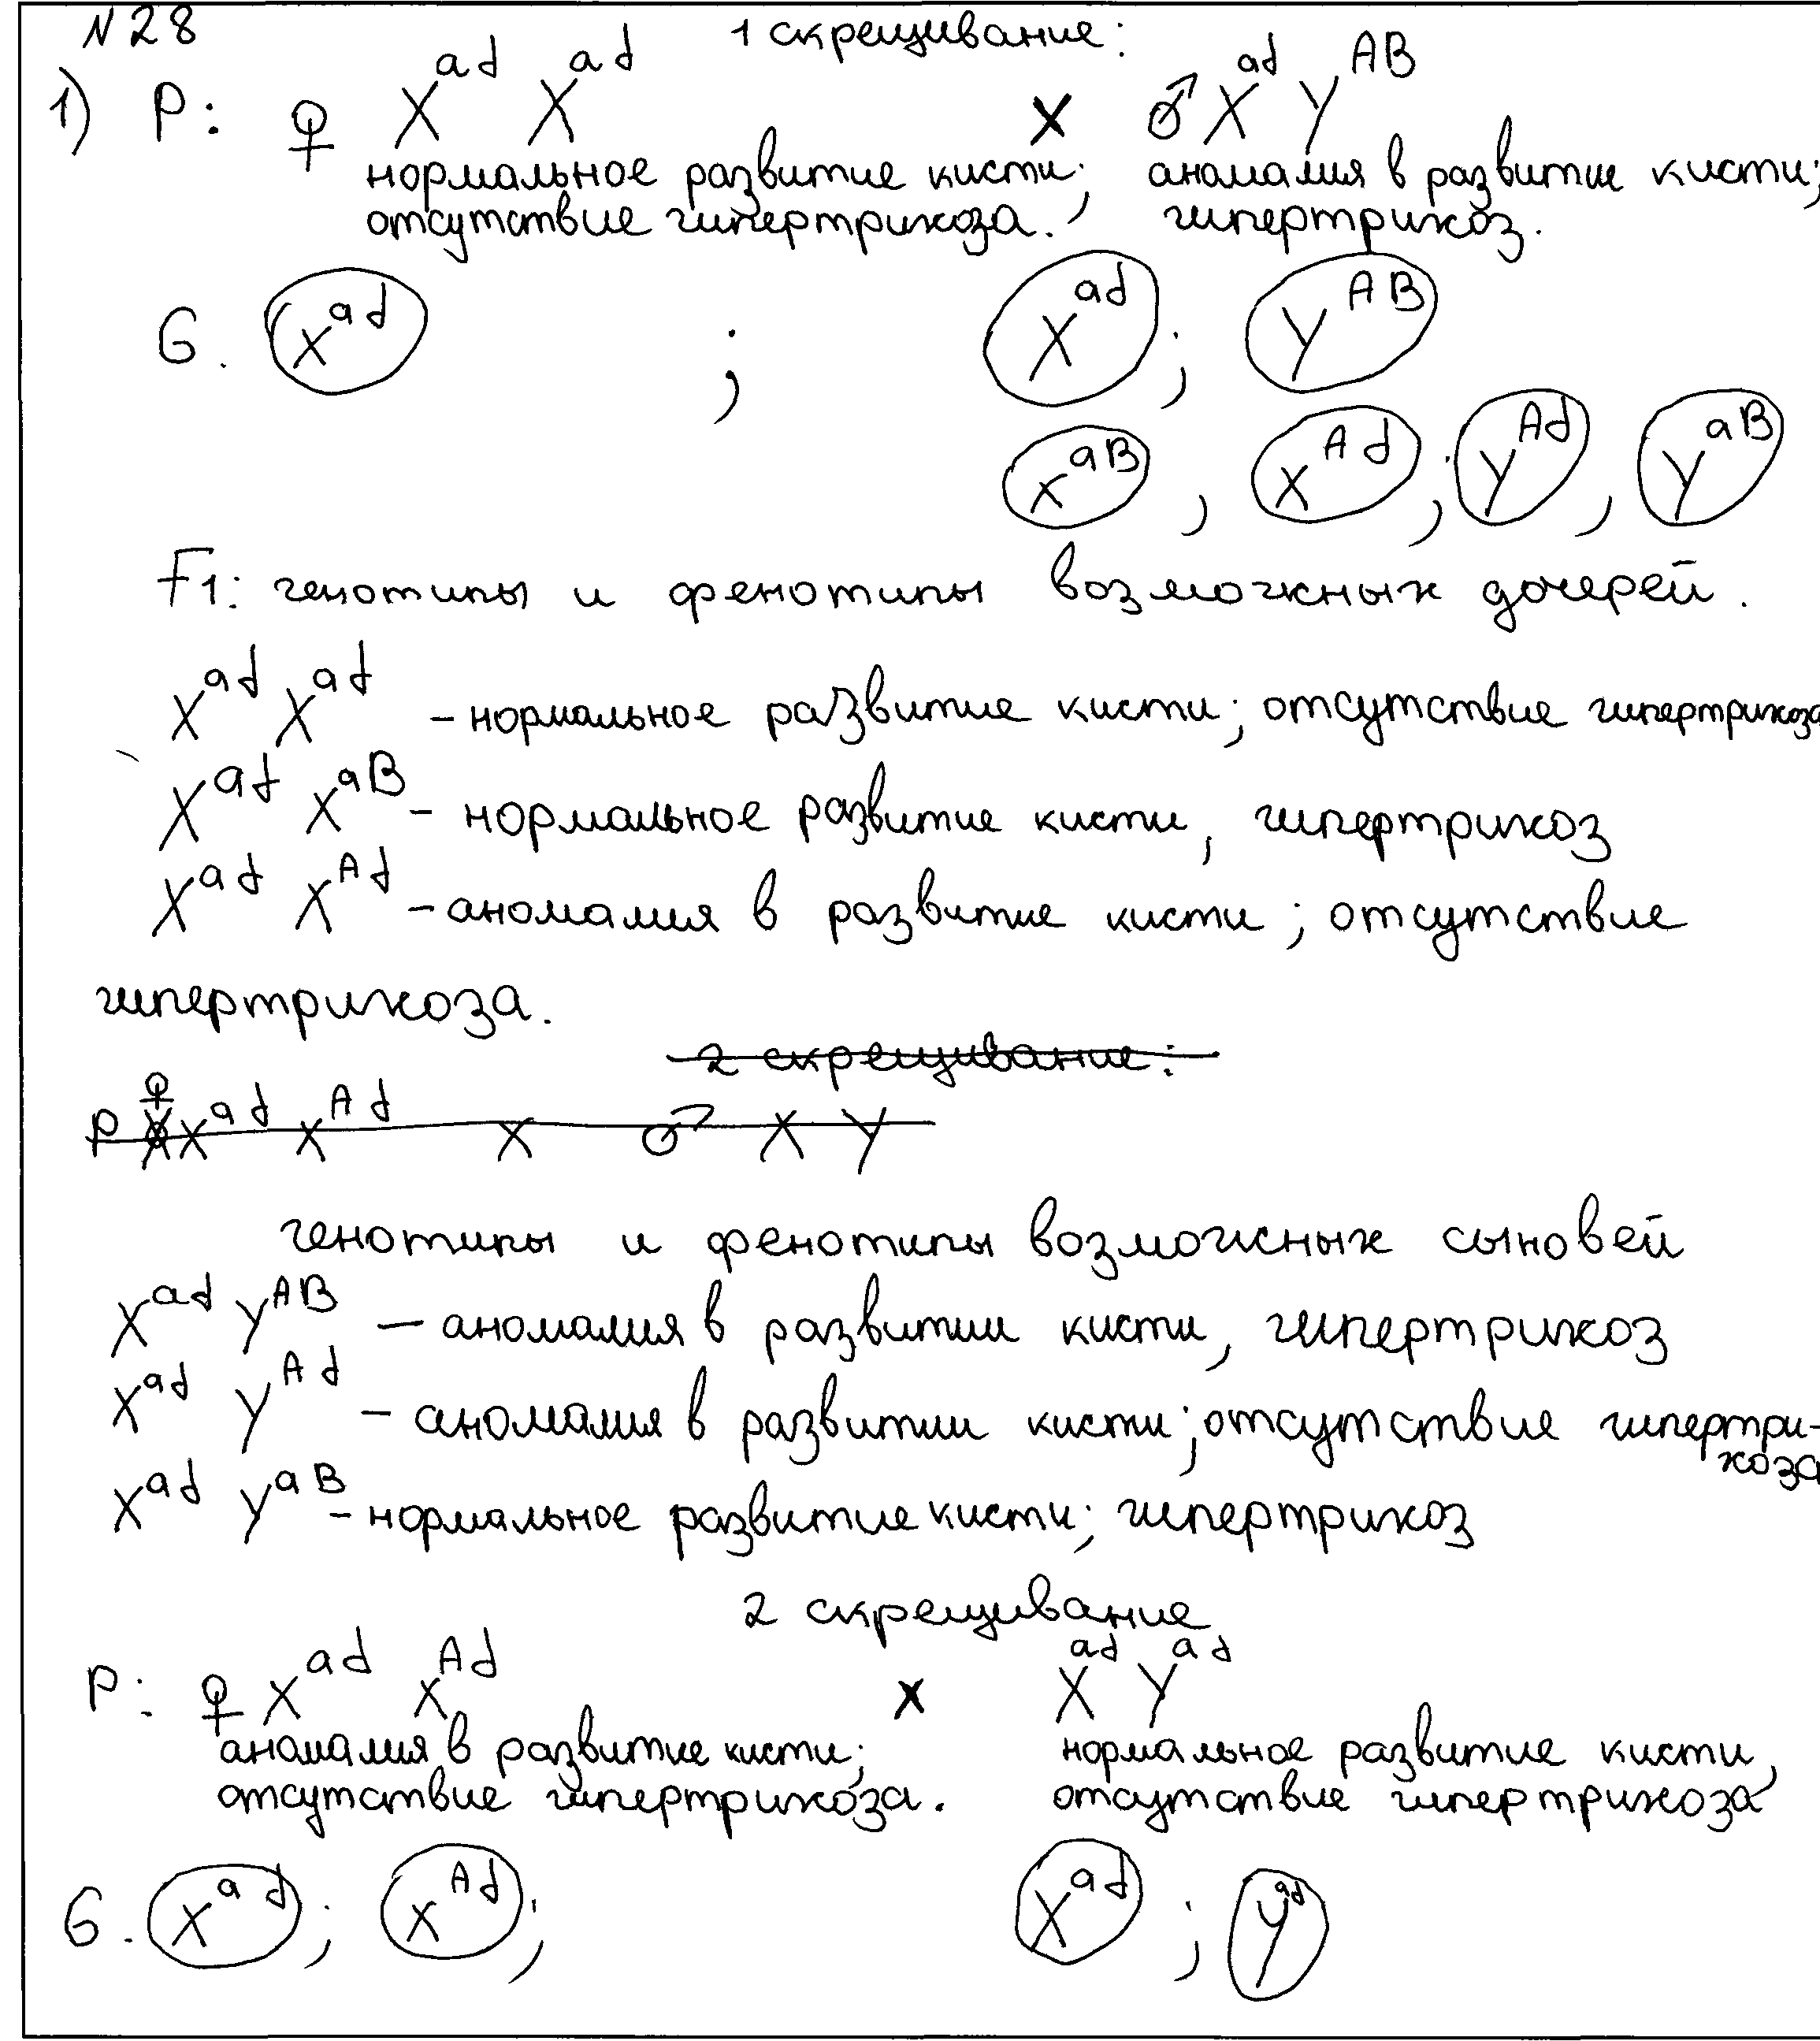 N28 1 скрещивание:
1) P: ♀ X^ad X^ad x ♂ X^ad Y^AB
нормальное развитие кисти; аномалия в развитие кисти;
отсутствие гипертрихоза. гипертрихоз.
G. X^ad ; X^ad ; Y^AB
X^aB , X^Ad ; Y^Ad , Y^aB
F1: генотипы и фенотипы возможных дочерей.
X^ad X^ad – нормальное развитие кисти; отсутствие гипертрихоза
X^ad X^aB – нормальное развитие кисти, гипертрихоз
X^ad X^Ad – аномалия в развитие кисти; отсутствие
гипертрихоза.
2 скрещивание:
P ♀ X^ad X^Ad x ♂ X Y
генотипы и фенотипы возможных сыновей
X^ad Y^AB – аномалия в развитии кисти, гипертрихоз
X^ad Y^Ad – аномалия в развитии кисти; отсутствие гипертри-
хоза
X^ad Y^aB – нормальное развитие кисти; гипертрихоз
2 скрещивание
P: ♀ X^ad X^Ad x X^ad Y^ad
аномалия в развитие кисти; нормальное развитие кисти,
отсутствие гипертрихоза. отсутствие гипертрихоза
G. X^ad ; X^Ad ; X^ad ; Y^ad